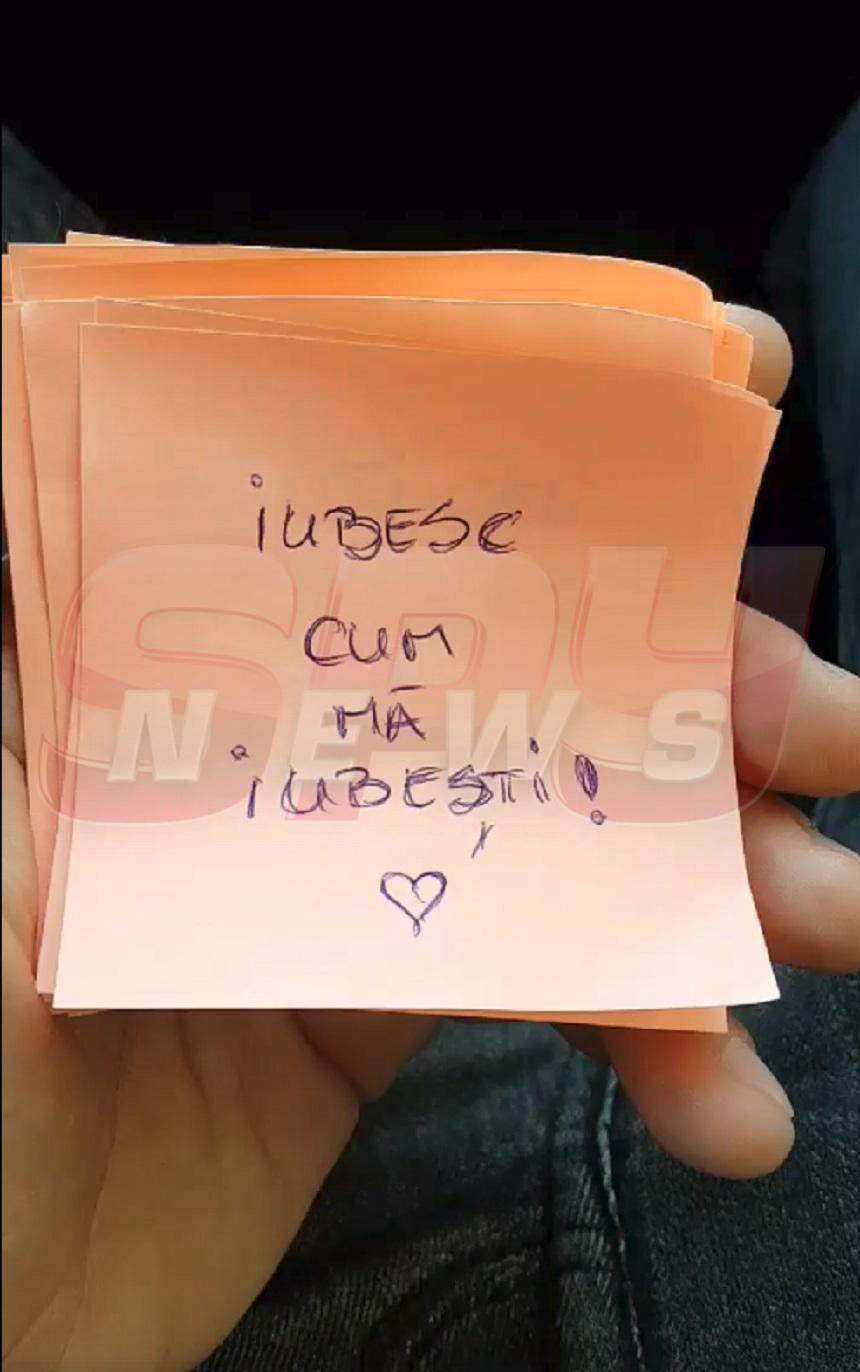 iUBESC
CUM
MĂ
iUBEȘTi!
SPY
NEWS